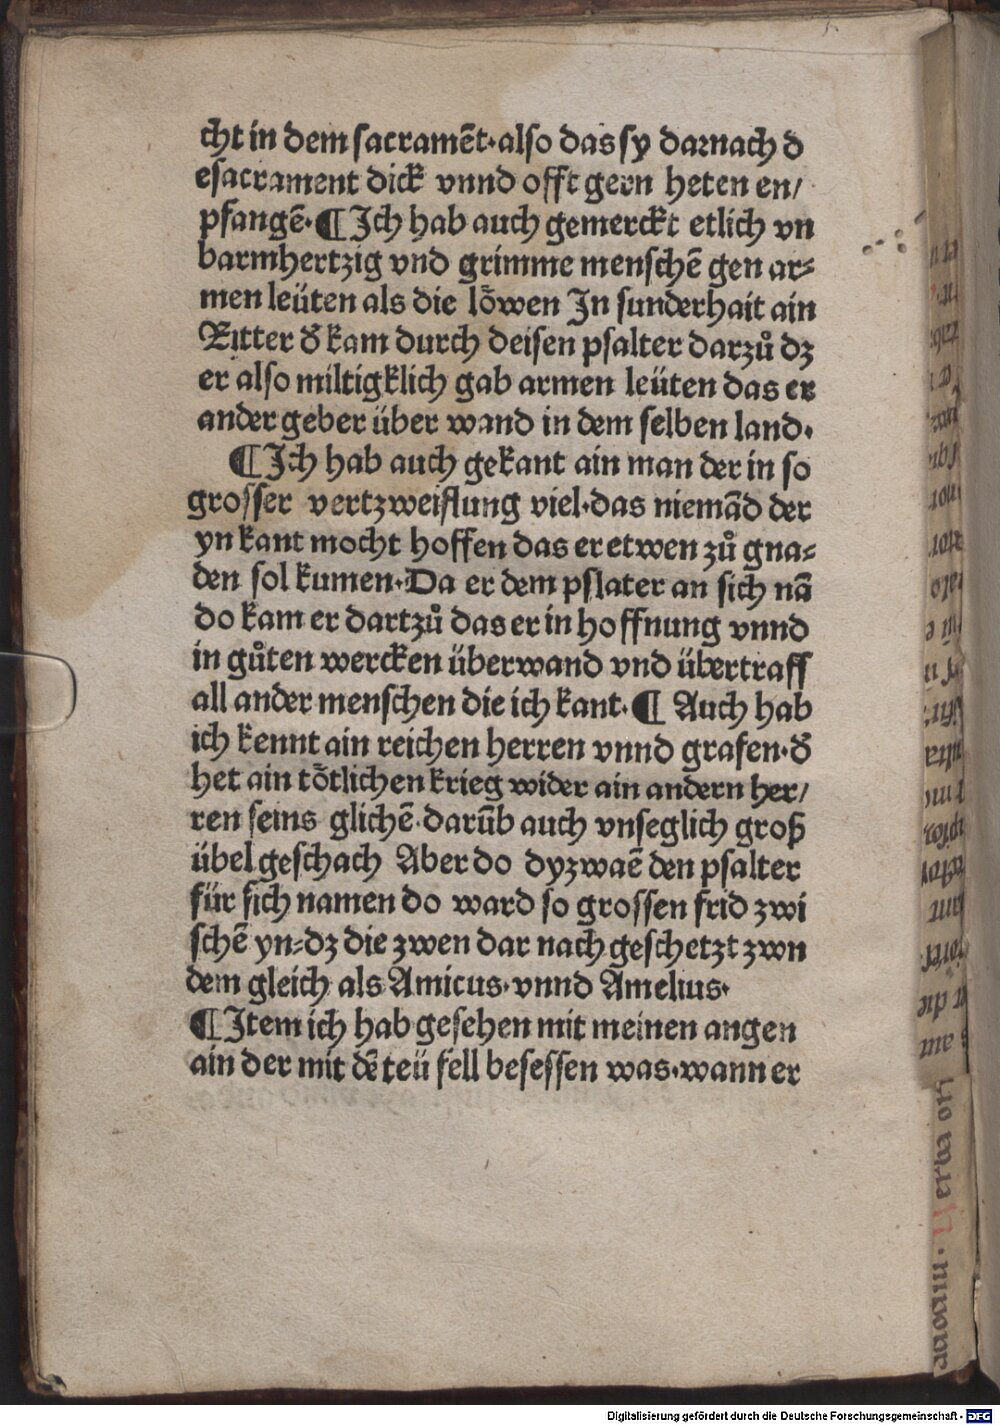 cht in dem sacramēt·also das sy darnach d
esacrament dick vnnd offt gern heten en/
pfangē·¶ Ich hab auch gemerckt etlich vn
barmhertzig vnd grimme menschē gen ar⸗
men leüten als die lȫwen In sunderhait ain
Ritter d̛ kam durch deisen psalter darzů dz
er also miltigklich gab armen leüten das er
ander geber über wand in dem selben land·
¶ Ich hab auch gekant ain man der in so
grosser vertzweiflung viel·das niemād der
yn kant mocht hoffen das er etwen zů gna⸗
den sol kumen·Da er dem pslater an sich nā
do kam er dartzů das er in hoffnung vnnd
in gůten wercken überwand vnd übertraff
all ander menschen die ich kant·¶ Auch hab
ich kennt ain reichen herren vnnd grafen·d̛
het ain tȫtlichen krieg wider ain andern her/
ren seins glichē·darūb auch vnseglich groß
übel geschach Aber do dyzwaē den psalter
für sich namen do ward so grossen frid zwi
schē yn⸗dz die zwen dar nach geschetzt zwn
dem gleich als Amicus·vnnd Amelius·
¶ Item ich hab gesehen mit meinen angen
ain der mit dē teü fell besessen was·wann er
Digitalisierung gefördert durch die Deutsche Forschungsgemeinschaft - DFG